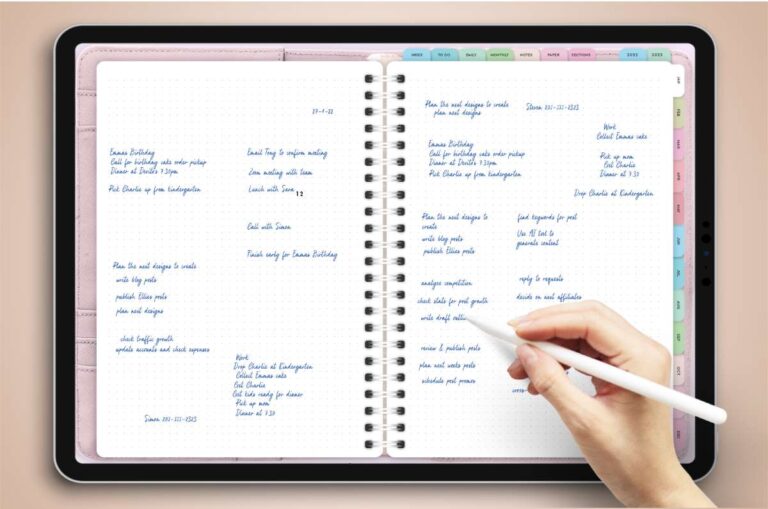 TO DO
DAILY
MONTHLY
NOTES
PAPER
SECTIONS
2022
2023
27-9-22
Emmas Birthday
Call for birthday cake order pickup
Dinner at Devitos 7:30pm
Pick Charlie up from kindergarten
Email Tony to confirm meeting
Zoom meeting with team
Lunch with Sara 12
Call with Simon
Finish early for Emmas Birthday
Plan the next designs to create
write blog posts
publish Ellies posts
plan next designs
check traffic growth
update accounts and check expenses
Work
Drop Charlie at Kindergarten
Collect Emmas cake
Get Charlie
Get kids ready for dinner
Pick up mom
Dinner at 7:30
Simon
Plan the next designs to create
plan next designs
Steven
Work
Collect Emmas cake
Pick up mom
Get Charlie
Dinner at 7:30
Drop Charlie at Kindergarten
Emmas Birthday
Call for birthday cake order pickup
Dinner at Devitos 7:30pm
Pick Charlie up from kindergarten
Plan the next designs to
create
write blog posts
publish Ellies posts
find keywords for post
Use AI tool to
generate content
analyse competition
check stats for post growth
write draft
reply to requests
decide on next affiliates
review & publish posts
plan next weeks posts
schedule post promos
JAN
FEB
MAR
APR
MAY
JUN
JUL
AUG
SEP
OCT
DEC